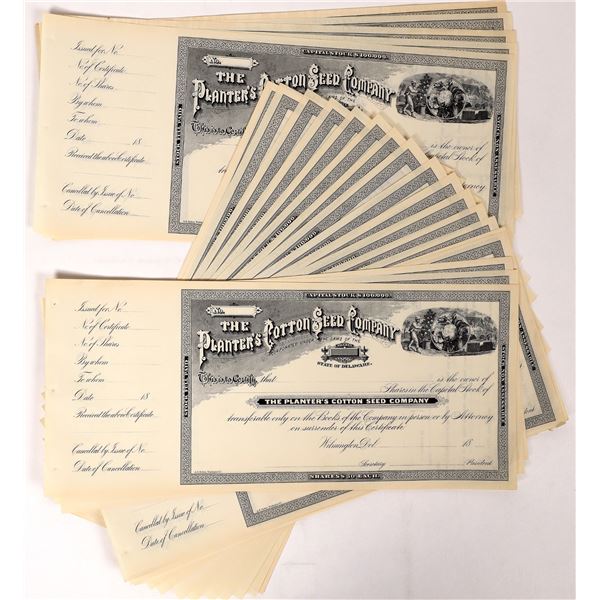 Issued for No.
No. of Certificate
No. of Shares
By whom
To whom
Date 18
Received the above Certificate
Cancelled by Issue of No.
Date of Cancellation
STOCK FULL PAID
CAPITAL STOCK $100,000.
No.
THE
PLANTER'S COTTON SEED COMPANY
LAWS OF THE
This is to Certify
is the owner of
Shares in the Capital Stock of
Attorney
Issued for No.
No. of Certificate
No. of Shares
By whom
To whom
Date 18
Received the above Certificate
Cancelled by Issue of No.
Date of Cancellation
STOCK FULL PAID
CAPITAL STOCK $100,000.
No.
THE
PLANTER'S COTTON SEED COMPANY
INCORPORATED UNDER THE LAWS OF THE
STATE OF DELAWARE.
This is to Certify that is the owner of
Shares in the Capital Stock of
THE PLANTER'S COTTON SEED COMPANY
transferable only on the Books of the Company in person or by Attorney
on surrender of this Certificate.
Wilmington, Del. 18
Secretary President
SHARES $50 EACH.
Cancelled by Issue of No.
Date of Cancellation